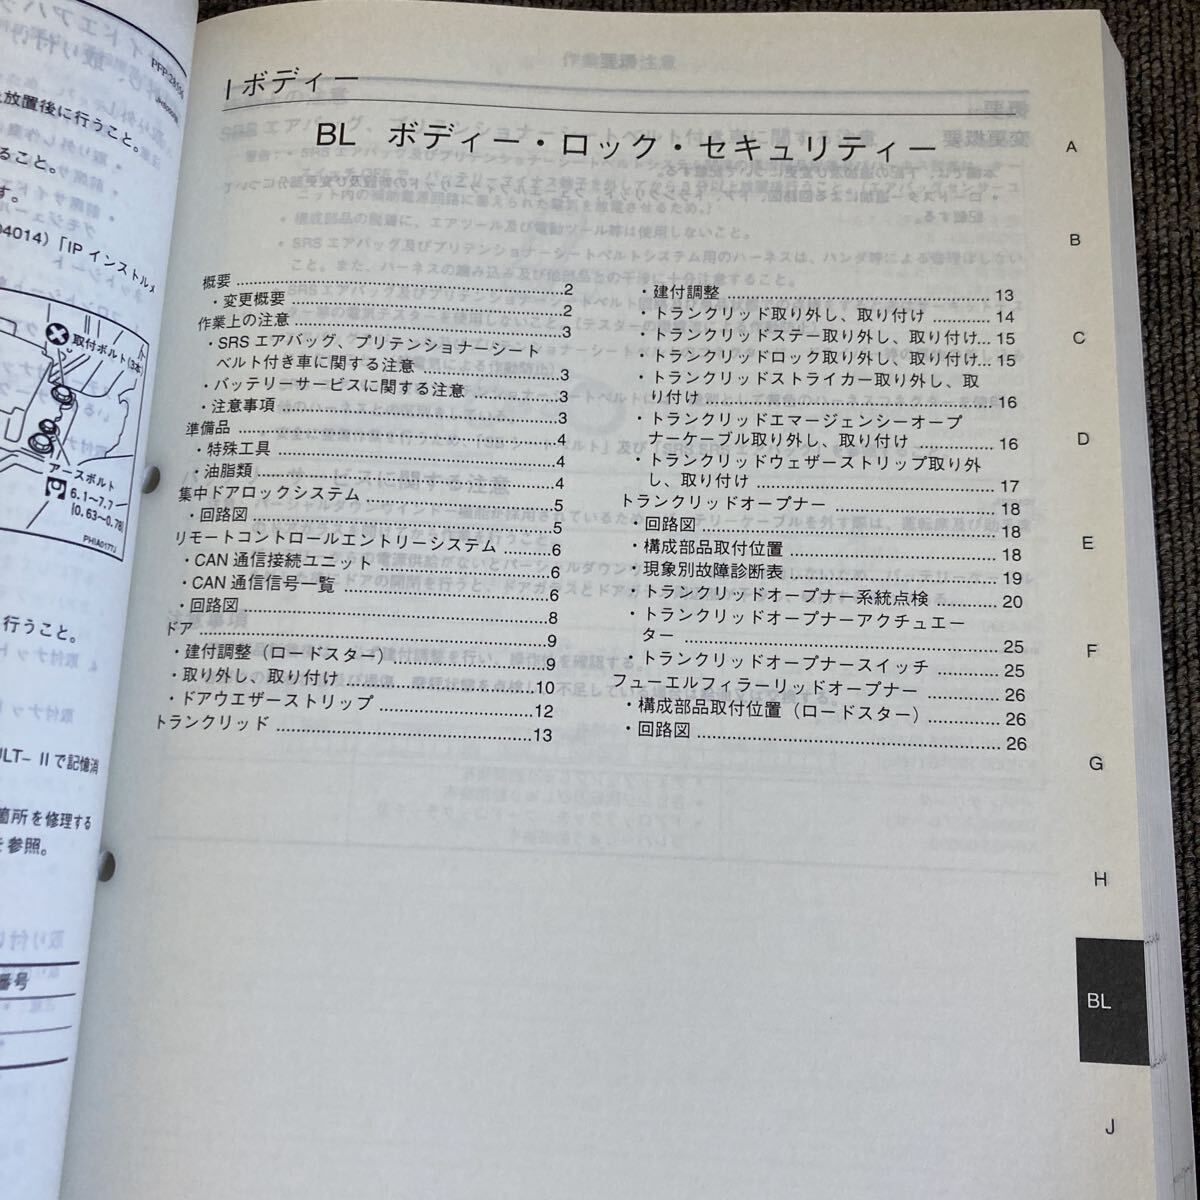 PFP:28556
放置後に行うこと。
ること。
す。
04014)「IP インストルメ
取付ボルト(3本)
アースボルト
6.1~7.7
{0.63~0.78}
PHIA0177J
行うこと。
ULT- II で記憶消
箇所を修理する
を参照。
番号
I ボディー
BL ボディー・ロック・セキュリティー
概要 2
・変更概要 2
作業上の注意 3
・SRS エアバッグ、プリテンショナーシート
ベルト付き車に関する注意 3
・バッテリーサービスに関する注意 3
・注意事項 3
準備品 4
・特殊工具 4
・油脂類 4
集中ドアロックシステム 5
・回路図 5
リモートコントロールエントリーシステム 6
・CAN 通信接続ユニット 6
・CAN 通信信号一覧 6
・回路図 8
ドア 9
・建付調整(ロードスター) 9
・取り外し、取り付け 10
・ドアウエザーストリップ 12
トランクリッド 13
・建付調整 13
・トランクリッド取り外し、取り付け 14
・トランクリッドステー取り外し、取り付け... 15
・トランクリッドロック取り外し、取り付け... 15
・トランクリッドストライカー取り外し、取
り付け 16
・トランクリッドエマージェンシーオープ
ナーケーブル取り外し、取り付け 16
・トランクリッドウェザーストリップ取り外
し、取り付け 17
トランクリッドオープナー 18
・回路図 18
・構成部品取付位置 18
・現象別故障診断表 19
・トランクリッドオープナー系統点検 20
・トランクリッドオープナーアクチュエー
ター 25
・トランクリッドオープナースイッチ 25
フューエルフィラーリッドオープナー 26
・構成部品取付位置(ロードスター) 26
・回路図 26
A
B
C
D
E
F
G
H
BL
J